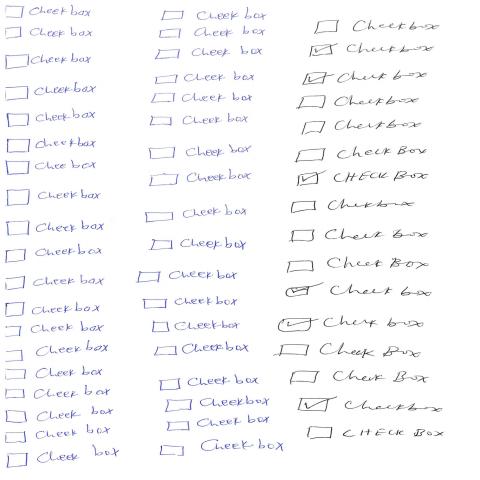 Check box
Check box
Checkbox
Check box
Check box
Checkbox
Chec box
Check box
Check box
Check box
Check box
Check box
Check box
Check box
Check box
Check box
Check box
Check box
Check box
Check box
Check box
Check box
Check box
Check box
Check box
Check box
Check box
Check box
Check box
Check box
Check box
Checkbox
Checkbox
Check box
Checkbox
Check box
Check box
Checkbox
Checkbox
Check box
Checkbox
Checkbox
Check Box
CHECK Box
Checkbox
Check Box
Check Box
Check box
Check box
Check Box
Check Box
Checkbox
CHECK Box